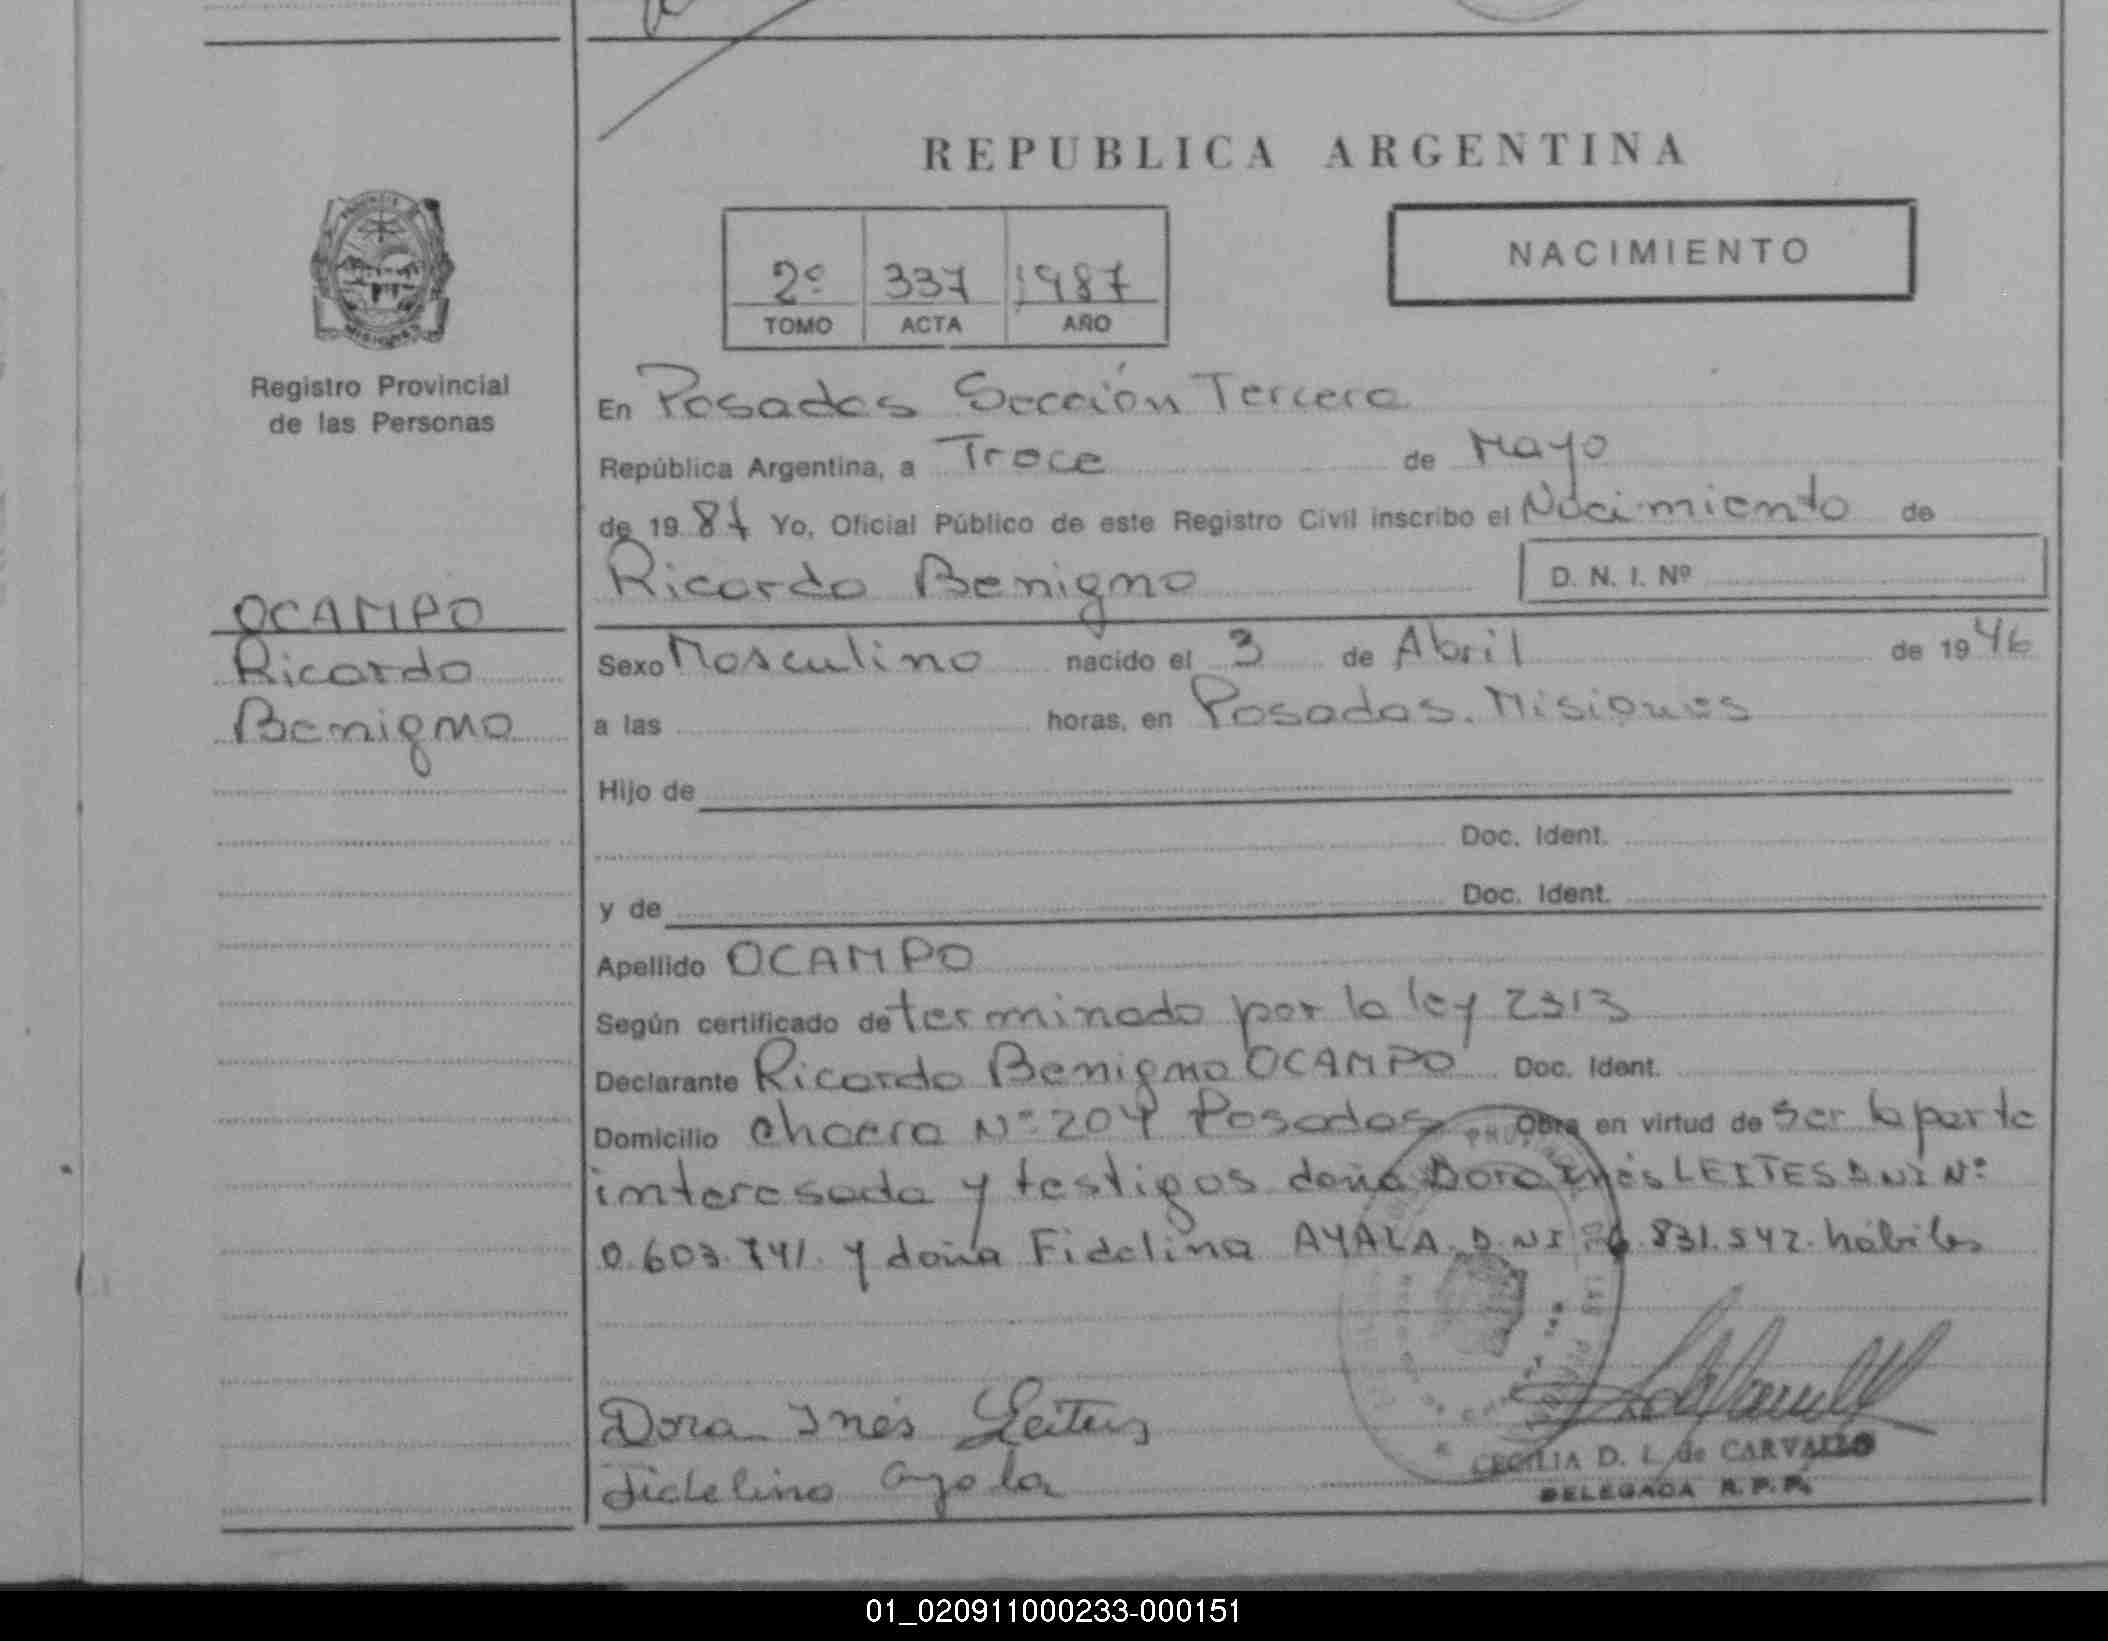 REPUBLICA ARGENTINA
NACIMIENTO
2º 337 1987
TOMO ACTA AÑO
Registro Provincial
de las Personas
OCAMPO
Ricardo
Benigno
En Posadas Sección Tercera
República Argentina, a Trece de Mayo
de 1987 Yo, Oficial Público de este Registro Civil inscribo el Nacimiento de
Ricardo Benigno D. N. I. Nº
Sexo Masculino nacido el 3 de Abril de 1946
a las horas, en Posadas. Misiones
Hijo de
Doc. Ident.
y de Doc. Ident.
Apellido OCAMPO
Según certificado determinado por la ley 2313
Declarante Ricardo Benigno OCAMPO Doc. Ident.
Domicilio chacra Nº 204 Posadas Obra en virtud de ser la parte
interesada y testigos doña Dora Inés LEITES DNI Nº
0.603.741. y doña Fidelina AYALA. D.NI 831.542. hábiles
Dora Inés Leites
Fidelina Ayala
CECILIA D. L. de CARVALLO
DELEGADA R.P.P.
01_020911000233-000151